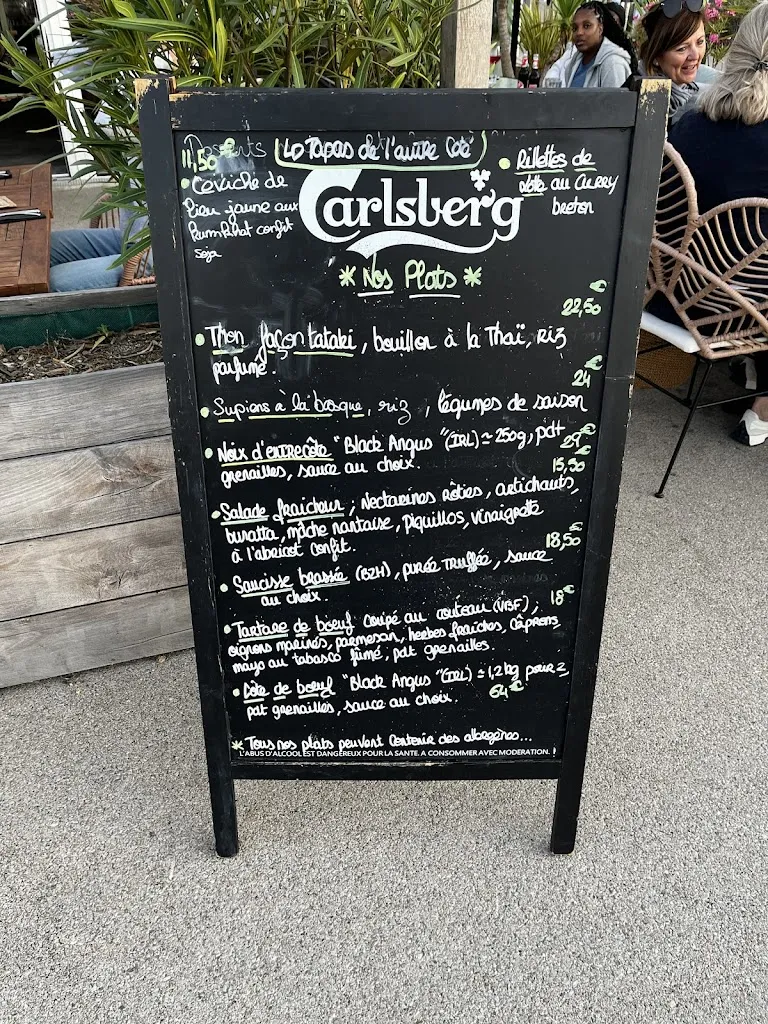 Desserts
11,50€
Lo Tapas de l'autre Coté
• Ceviche de
lieu jaune aux
Kumkhat confit
Soja
• Rillettes de
au Curry
breton
Carlsberg
* Nos Plats *
22,50€
• Thon façon tataki, bouillon à la Thaï, Riz
parfumé.
24€
• Supions à la basque, riz, légumes de saison
• Noix d'entrecôte "Black Angus" (IRL) ≃ 250g, pdt
grenailles, sauce au choix.
15,50€
• Salade fraicheur, Nectarines Rôties, artichauts,
buratta, mâche nantaise, piquillos, vinaigrette
à l'abricot confit.
18,50€
• Saucisse brassée (BZH), purée truffée, sauce
au choix.
18€
• Tartare de boeuf coupé au couteau (VBF),
oignons marinés, parmesan, herbes fraîches, câprons,
mayo au tabasco fumé, pdt grenailles.
• Côte de boeuf "Black Angus" (IRL) ≃ 1,2kg pour 2,
pdt grenailles, sauce au choix. 64€
* Tous nos plats peuvent contenir des allergènes...
L'ABUS D'ALCOOL EST DANGEREUX POUR LA SANTE. A CONSOMMER AVEC MODERATION.